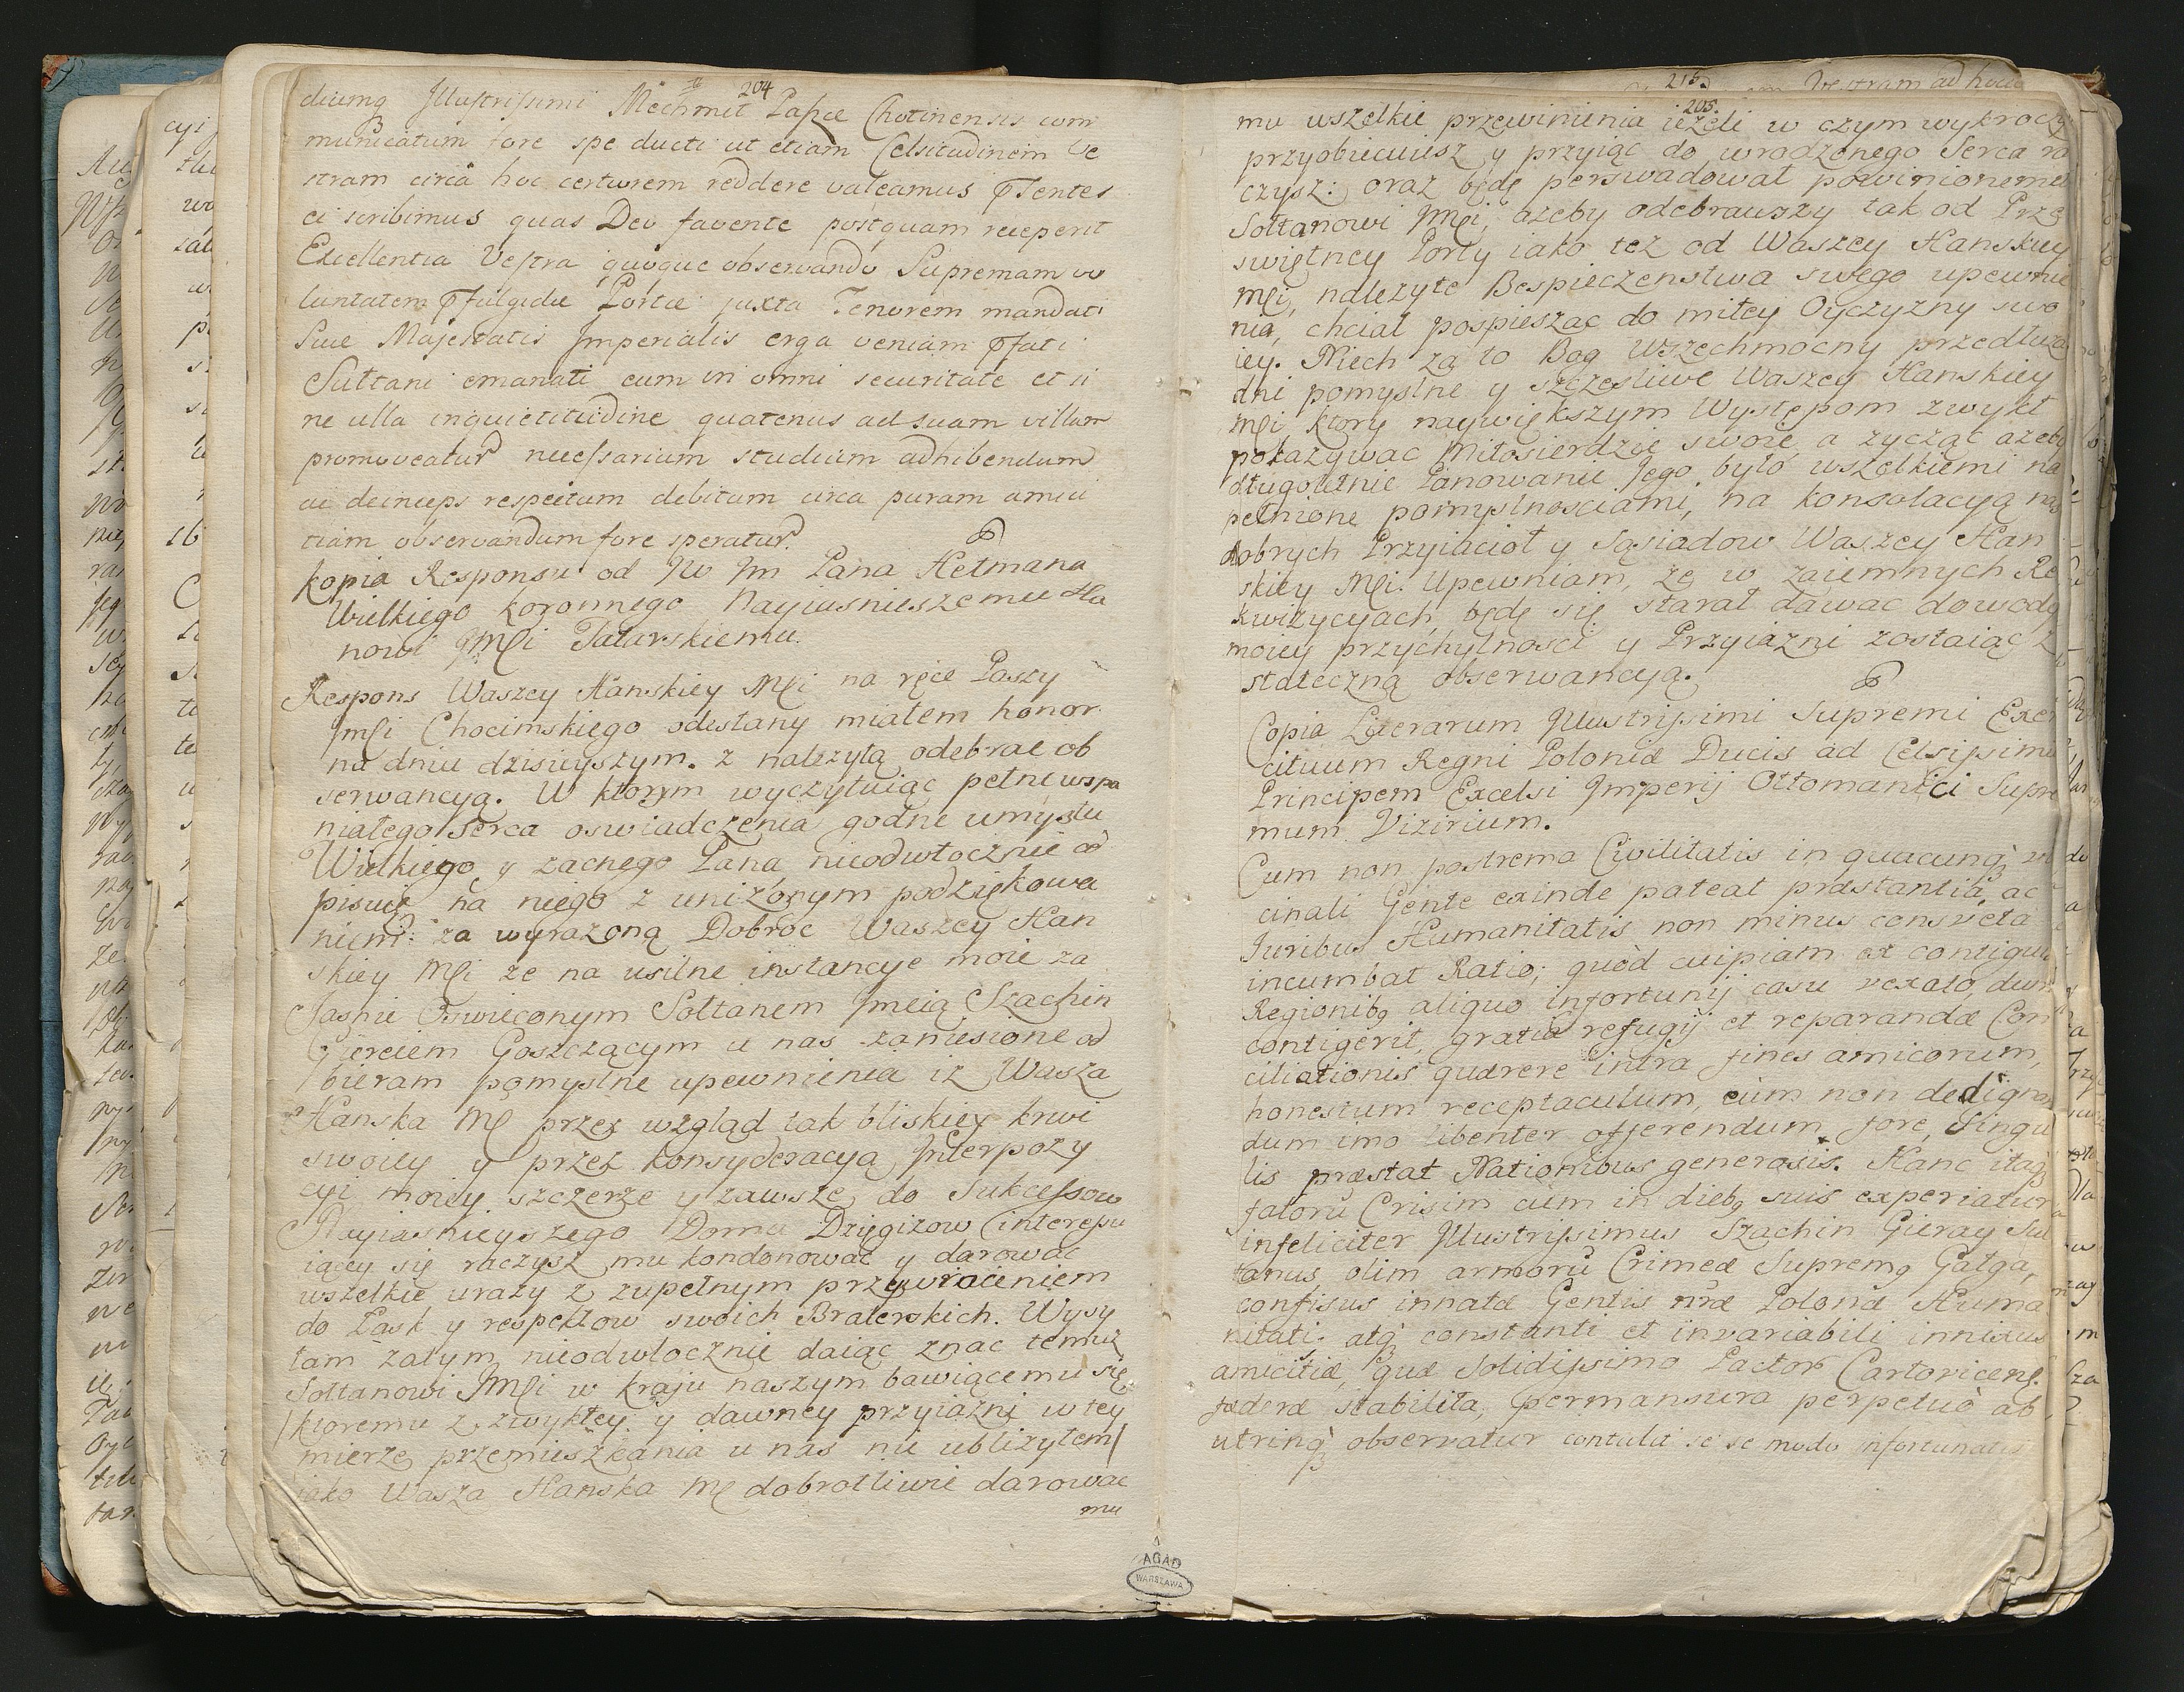 204
diumq Illustrissimi Mechmet Paszae Chotinensis com
municatum fore spe ducti ut etiam Celsitudinem Ve
stram circa hoc certiorem reddere valeamus Psentes
ei scribimus quas Deo favente postquam receperit
Excellentia Vestra quoque observando Supremam vo
luntatem Pfulgidae Portae juxta Tenorem mandati
Suae Majestatis Imperialis erga veniam Pfati
Sultani emanati cum in omni securitate et si
ne ulla inquietitudine quatenus ad suam villam
promoveatur necessarium studium adhibendum
ac deinceps respectum debitum circa puram amici
tiam observandum fore speratur.
Kopia Responsu od JW Jm Pana Hetmana
Wielkiego Koronnego Nayiasnieszemu Ha
nowi JMCi Tatarskiemu.
Respons Waszey Hanskiey Mci na ręce Paszy
Jmsi Chocimskiego odesłany miałem honor
na dniu dzisieyszym. z należytą odebrać ob
serwancyą. W ktorym wyczytuiąc pełne wspa
niałego serca oswiadczenia godne umysłu
Wielkiego y zacnego Pana, nieodwłocznie od
pisuię na niego z uniżonym podziękowa
niem: za wyrażoną Dobroc Waszey Han
skiey Mci ze na usilne instancye moie za
Jasnie Oswieconym Sołtanem Jmcią Szachin
Giereiem Goszczącym u nas zaniesione od
bieram pomyslne upewnienia iz Wasza
Hanska Mc przez wzgląd tak bliskiey krwi
swoiey y przez konsyderacyą Interpozy
cyi moiey szczerze y zawsze do Sukcessow
Nayiasnieyszego Domu Dzięgizow interessu
iącey się raczysz mu kondonować y darować
wszelkie urazy z zupełnym przywroceniem
do Łask y respektow swoich Braterskich. Wysy
łam zatym nieodwłocznie daiąc znac temuz
Sołtanowi JMCi w kraju naszym bawiącemu się
/ktoremu z zwykłey y dawney przyiazni w tey
mierze przemieszkania u nas nie ubliżyłem/
iako Wasza Hanska Mc dobrotliwie darowac
mu
215.
205.
mu wszelkie przewinienia ieżeli w czym wykroczy
przyobiecuiesz y przyiąc do wrodzonego Serca ra
czysz: oraz będę perswadował powinionemu
Sołtanowi JMci, ażeby odebrawszy tak od Prze
swiętney Porty iako tez od Waszey Hanskiey
Mci, należyte Bespieczenstwa swego upewnie
nia, chciał pospieszac do miłey Oyczyzny swo
iey. Niech za to Bog Wszechmocny przedłuża
dni pomyslne y szczęsliwe Waszey Hanskiey
Mci ktory naywiększym Występom zwykł
pokazywac Miłosierdzie swoie, a zycząc azeby
długoletnie Panowanie Jego było wszelkiemi na
pełnione pomyslnosciami, na konsolacyą nas
dobrych Przyiacioł y Sąsiadow Waszey Han
skiey Mci. Upewniam, że w zaiemnych Re
kwizycyach będę się starał dawac dowody
moiey przychylnosci y Przyiazni zostaiąc z
stateczną obserwancyą.
Copia Literarum Illustrissimi Supremi Exer
cituum Regni Poloniae Ducis ad Celsissimu
Principem Excelsi Imperij Ottomanici Supre
mum Vizirium.
Cum non postrema Civilitatis in quacunq vi
cinali Gente exinde pateat praestantia, ac
Iuribus Humanitatis non minus consveta
incumbat Ratio; quòd cuipiam ex contiguis
Regionib9 aliquo infortunij casu vexato, dum
contigerit, gratiâ refugij et reparandae Con
ciliationis quaerere intra fines amicorum,
honestum receptaculum, eùm non dedigna
dum imo libenter offerendum fore, Singu
lis praestat Nationibus generosis. Hanc itaq
fatorũ Crisim cùm in dieb9 suis experiatur
infeliciter Illustrissimus Szachin Gieray Sul
tanus, olim armorũ Crimeae Suprem9 Gałga,
confisus innatae Gentis nrae Polonae Huma
nitati: atq constanti et invariabili innixus
amicitiae, quae Solidissimo Pactor Cartovicens.
foedere stabilita, permansura perpetuò ab
utrinq observatur contulit se se modo infortunatus
AGAD
WARSZAWA